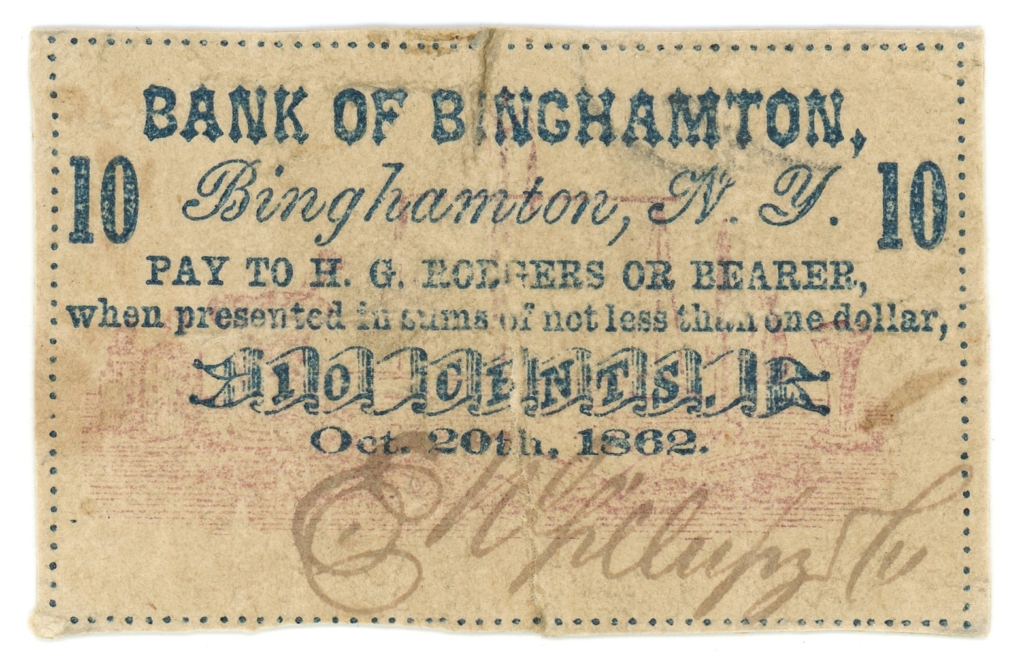 BANK OF BINGHAMTON,
10 Binghamton, N. Y. 10
PAY TO H. G. RODGERS OR BEARER,
when presented in sums of not less than one dollar,
10 CENTS.
Oct. 20th, 1862.